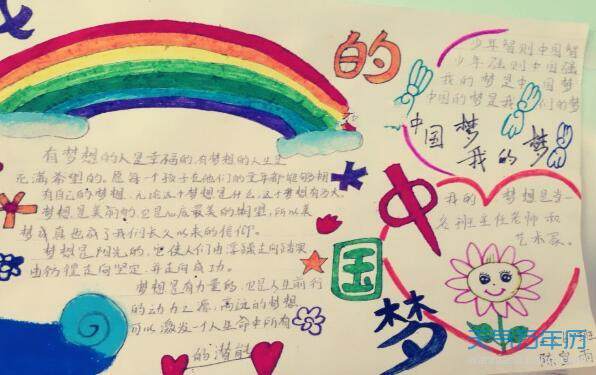 我
的
中
国
梦
有梦想的人是幸福的,有梦想的人生是
充满希望的。愿每一个孩子在他们的童年都能够拥
有自己的梦想,无论这个梦想是什么,这个梦想有多大。
梦想是美丽的,它是心底最美的期望,所以美
梦成真也成了我们长久以来的信仰。
梦想是阳光的,它使人们由浮躁走向踏实,
由彷徨走向坚定,并走向成功。
梦想是有力量的,它是人生前行
的动力之源;高远的梦想
可以激发一个人生命中所有
的潜能
少年智则中国智
少年强则中国强
我的梦是中国梦
中国的梦是我们的梦
中国梦
我的梦
我的梦想是当一
名班主任老师和
艺术家。
班
陈宣雨